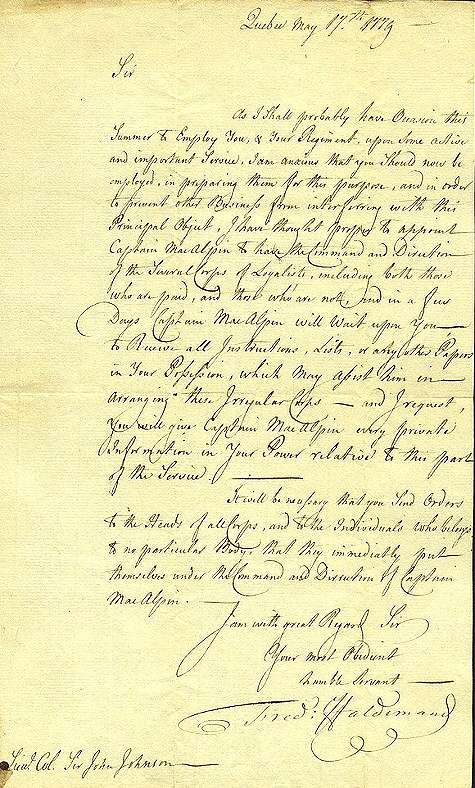 Quebec May 17th 1779
Sir
As I Shall probably have Occasion this
Summer to Employ You, & Your Regiment, upon Some active
and important Service, I am anxious that you Should now be
employed, in preparing them for this purpose, and in order
to prevent other Business from interferring with this
Principal Object, I have thought proper to appoint
Captain MacAlpin to have the Command and Direction
of the Several Corps of Loyalists, including both those
who are paid, and those who are not, and in a few
Days Captain MacAlpin will Wait upon You
to Receive all Instructions, Lists, or any other Papers
in Your Possession, which May assist him in
arranging these Irregular Corps — and I request,
You will give Captain MacAlpin every private
Information in Your Power relative to this part
of the Service.
It will be necessary that you Send Orders
to the Heads of all Corps, and to the Individuals who belong
to no particular Body, that they immediatly put
themselves under the Command and Direction of Captain
MacAlpin.
I am with great Regard Sir
Your most Obedient
humble Servant
Fred: Haldimand
Lieut. Col. Sir John Johnson